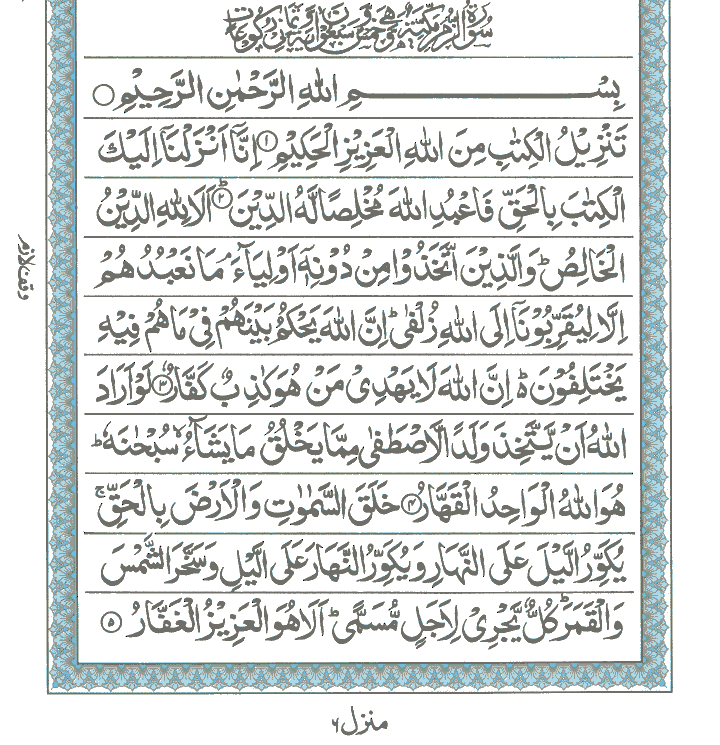 سُوْرَةُ الزُّمَرِ مَكِّيَّةٌ وَّهِيَ خَمْسٌ وَّسَبْعُوْنَ اٰيَةً وَّثَمَانِيْ رُكُوْعَاتٍ
بِسْمِ اللّٰهِ الرَّحْمٰنِ الرَّحِيْمِ ○
تَنْزِيْلُ الْكِتٰبِ مِنَ اللّٰهِ الْعَزِيْزِ الْحَكِيْمِ ۝۱ اِنَّاۤ اَنْزَلْنَاۤ اِلَيْكَ
الْكِتٰبَ بِالْحَقِّ فَاعْبُدِ اللّٰهَ مُخْلِصًا لَّهُ الدِّيْنَ ؕ۝۲ اَلَا لِلّٰهِ الدِّيْنُ
الْخَالِصُ ؕ وَالَّذِيْنَ اتَّخَذُوْا مِنْ دُوْنِهٖۤ اَوْلِيَآءَ ۘ مَا نَعْبُدُهُمْ
اِلَّا لِيُقَرِّبُوْنَاۤ اِلَى اللّٰهِ زُلْفٰى ؕ اِنَّ اللّٰهَ يَحْكُمُ بَيْنَهُمْ فِيْ مَا هُمْ فِيْهِ
يَخْتَلِفُوْنَ ۬ؕ اِنَّ اللّٰهَ لَا يَهْدِيْ مَنْ هُوَ كٰذِبٌ كَفَّارٌ ۝۳ لَوْ اَرَادَ
اللّٰهُ اَنْ يَّتَّخِذَ وَلَدًا لَّاصْطَفٰى مِمَّا يَخْلُقُ مَا يَشَآءُ ۙ سُبْحٰنَهٗ ؕ
هُوَ اللّٰهُ الْوَاحِدُ الْقَهَّارُ ۝۴ خَلَقَ السَّمٰوٰتِ وَالْاَرْضَ بِالْحَقِّ ۚ
يُكَوِّرُ الَّيْلَ عَلَى النَّهَارِ وَيُكَوِّرُ النَّهَارَ عَلَى الَّيْلِ وَسَخَّرَ الشَّمْسَ
وَالْقَمَرَ ؕ كُلٌّ يَّجْرِيْ لِاَجَلٍ مُّسَمًّى ؕ اَلَا هُوَ الْعَزِيْزُ الْغَفَّارُ ۝۵
وقف لازم
منزل ۶